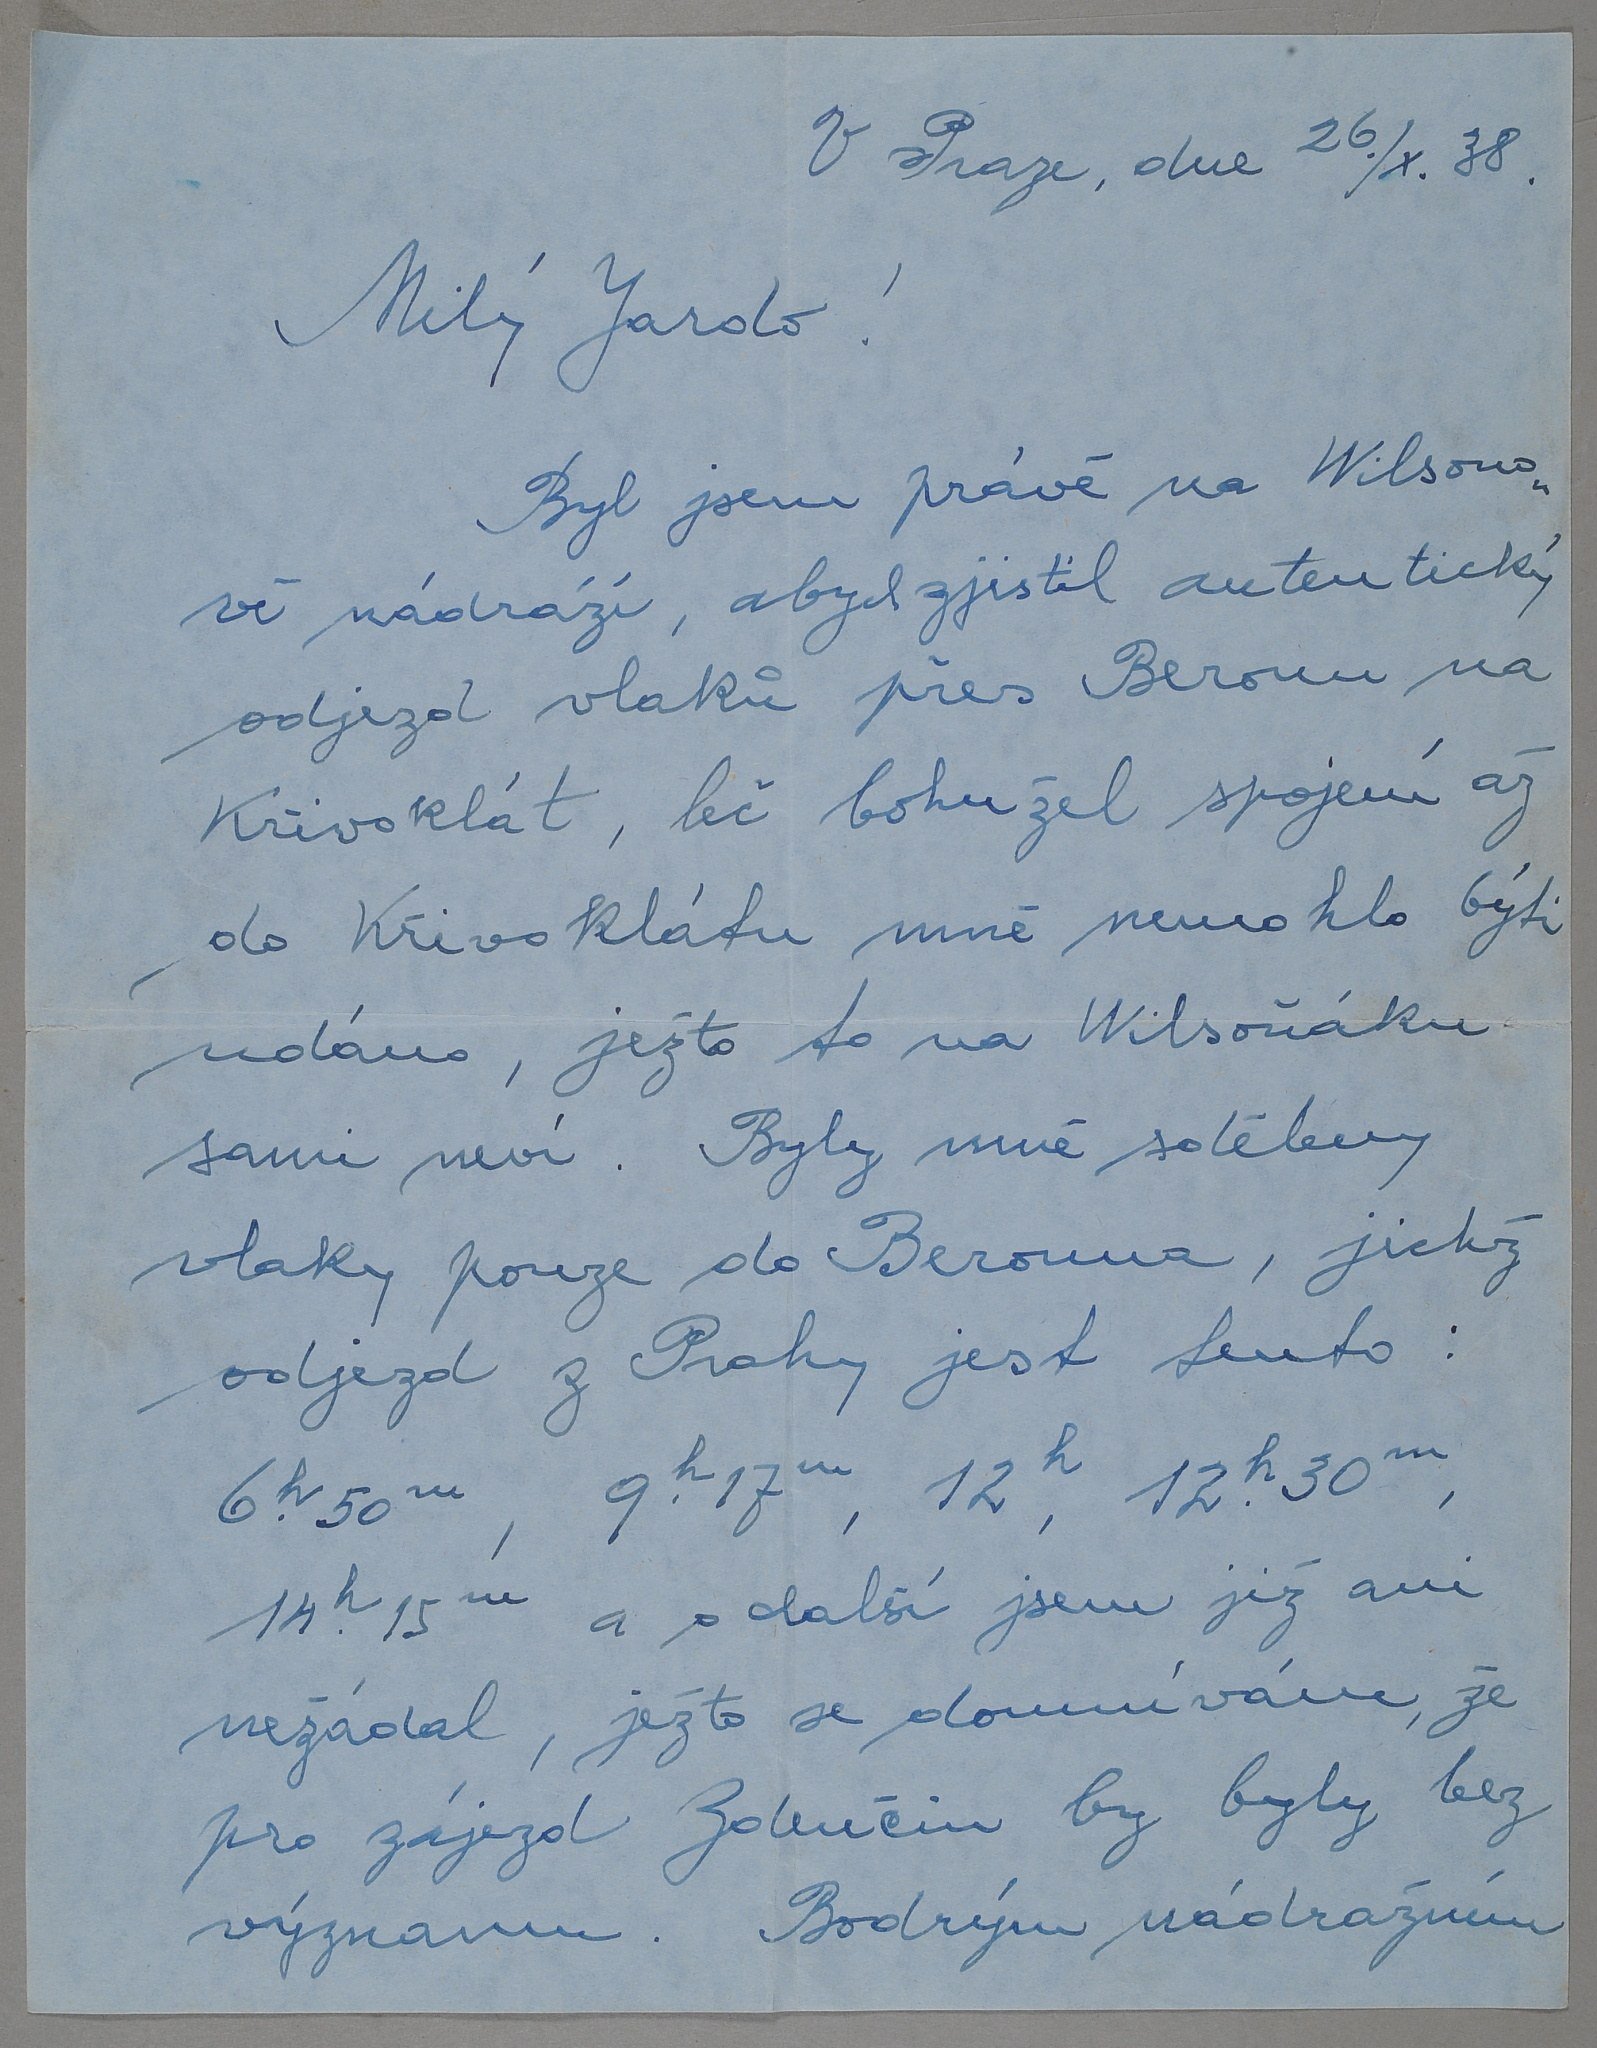 V Praze, dne 26./X. 38.
Milý Jardo!
Byl jsem právě na Wilsono„
vě nádraží, abych zjistil autentický
odjezd vlaků přes Beroun na
Křivoklát, leč bohužel spojení až
do Křivoklátu mně nemohlo býti
udáno, ježto to na Wilsoňáku
sami neví. Byly mně sděleny
vlaky pouze do Berouna, jichž
odjezd z Prahy jest tento:
6h.50m, 9h.17m, 12h, 12h.30m,
14h.15m a o další jsem již ani
nežádal, ježto se domnívám, že
pro zájezd Zdenčin by byly bez
významu. Bodrým nádražním